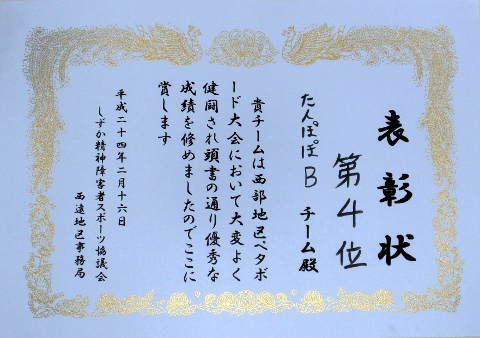 表彰状
第4位
たんぽぽB チーム殿
貴チームは西部地区ペタボ
ード大会において大変よく
健闘され頭書の通り優秀な
成績を修めましたのでここに
賞します
平成二十四年二月十六日
しずおか精神障害者スポーツ協議会
西遠地区事務局